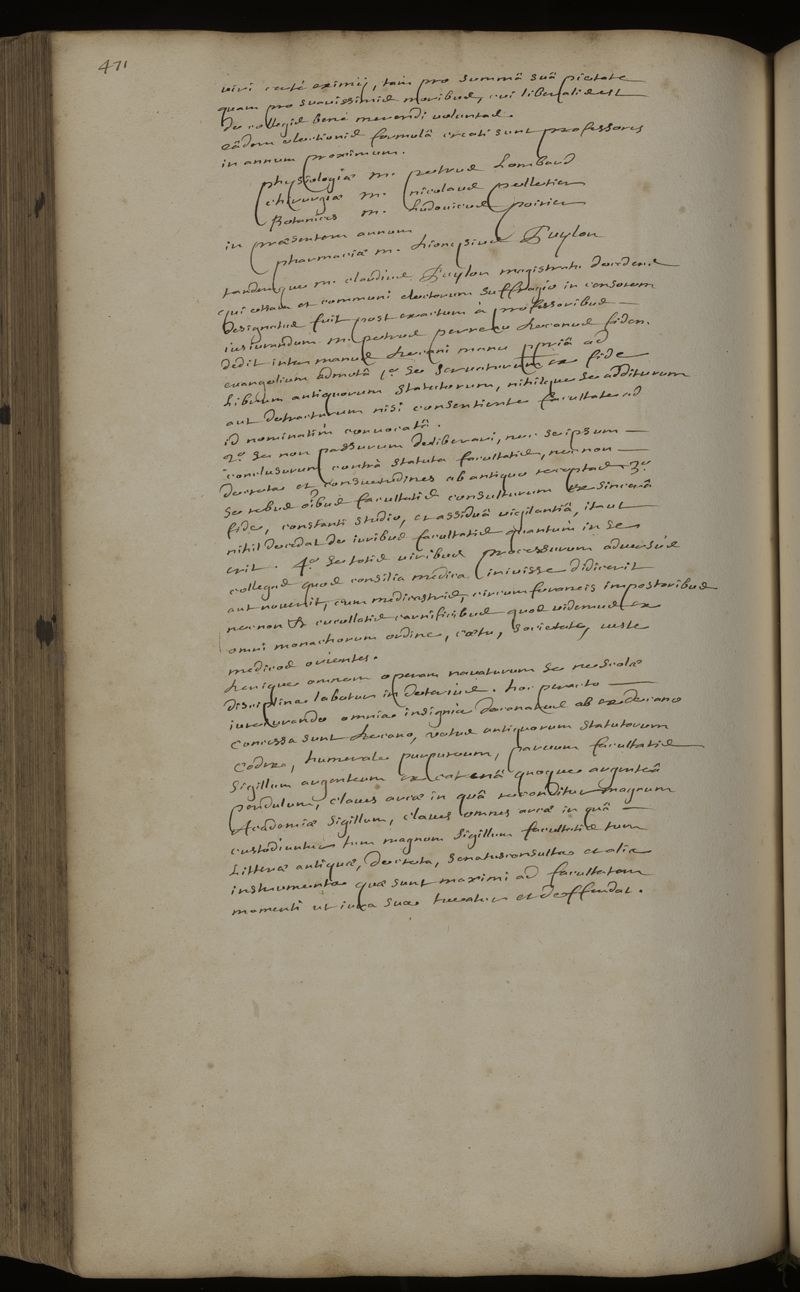 471
viri certé eximij, tam pro summâ suâ pietate
quam pro suavissimis moribus, cui liberalis est
de collegis bene merendi voluntas.
eâdem electionis formulâ creati sunt professores
in annum proximum.
physiologiæ m. petrus Lombard
chirurgiæ m. nicolaus pelletier
Botanices m. Ludovicus poirier
in præsentem annum
pharmaciæ m. Dionysius Puylon
tandemque m. claudius Puylon magistratu decedens
qui etiam et communi electorum suffragio in censorem
designatus fuit post exactum à professoribus
iusiurandum m. petrus perreau decanus fidem
dedit inter manus decani manu ppriâ ad
evangelium admotâ 1.º se servaturum ex fide
Librum antiquorum statutorum, nihilque se additurum
aut detracturum nisi consentiente facultate ad
id nominatim convocatâ.
2.º se non passurum deliberari, nec se ipsum
conclusurum contrà statuta facultatis, nec non
decreta et consuetudines ab antiquo receptas 3.º
se rebus oîbus facultatis consulturum ex sincerâ
fide, constanti studio, et assiduâ vigilantiâ, itaut
nihil decedat de iuribus facultatis quantum in se
erit. 4.º se totis viribus processurum adversùs
collegas quos consilia medica inivisse didicerit
aut noverit, cum medicastris, circumforaneis impostoribus
necnon & cucullatis carnificibus quos videmus ex
omni monachorum ordine, cœtu, societate, veste
medicos orientes.
Denique omnem operam navaturum se ne scolæ
disciplina labatur in deterius. hoc peracto
iureiurando omnia insignia decanatus ab exdecano
concessa sunt decano, vetus antiquorum statutorum
codex, humerale purpureum, parvum facultatis
sigillum argenteum ex catenâ quoque argenteâ
pendulum, claves arcæ in quâ reconditur magnum
Academiæ sigillum, claves omnes arcæ in quâ
custodiuntur tum magnum sigillum facultatis tum
Litteræ antiquæ, decreta, senatusconsulta et alia
instrumenta quæ sunt maximi ad facultatem
momenti ut iura sua tueatur et deffendat.